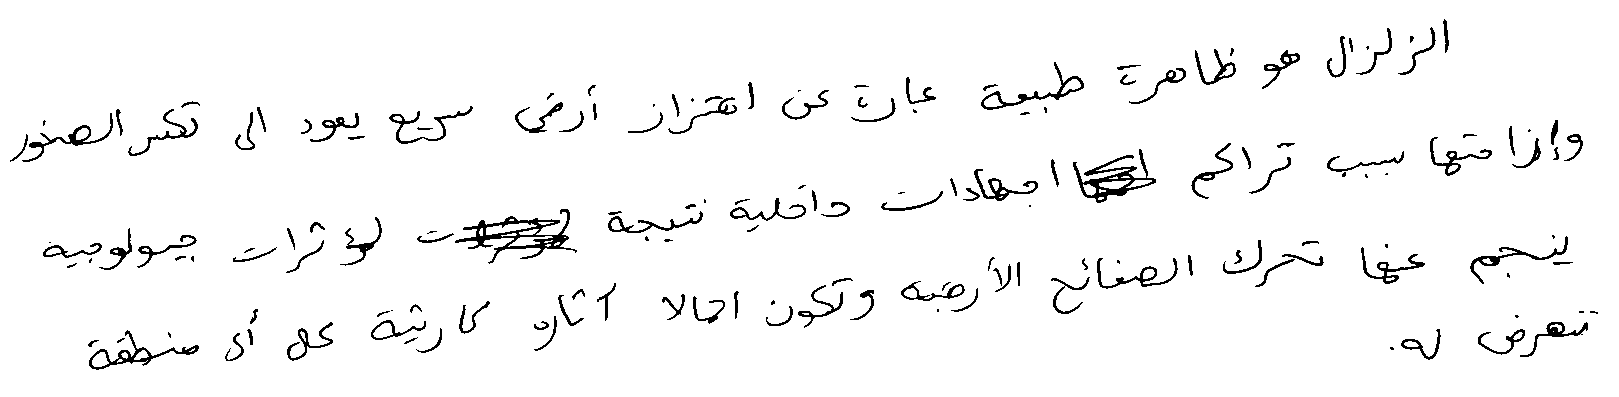 الزلزال هو ظاهرة طبيعة عبارة عن اهتزاز أرضي سريع يعود الى تكسر الصخور
وإزاحتها بسبب تراكم اجهادات داخلية نتيجة لمؤثرات جيولوجيه
ينجم عنها تحرك الصفائح الأرضية وتكون اجمالا آثاره كارثية على أي منطقة
تتعرض له.